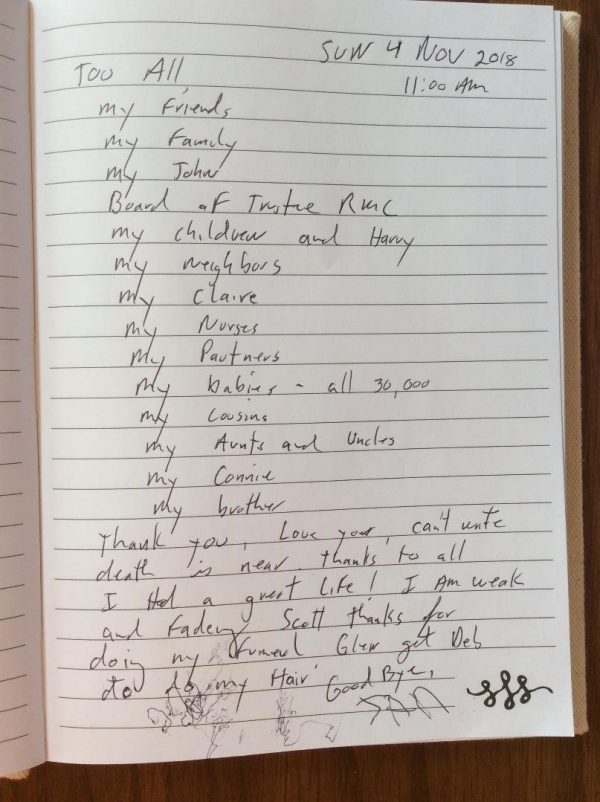 SUN 4 NOV 2018
Too All, 11:00 AM
my Friends
my Family
my John
Board of Trustee RMC
my children and Harry
my neighbors
my Claire
my Nurses
my Partners
my babies - all 30,000
my cousins
my Aunts and Uncles
my Connie
my brother
Thank you, Love you, can't write
death is near. thanks to all
I Had a great life! I Am weak
and Fading Scott thanks for
doing my funeral get Deb
to do my Hair Good Bye,